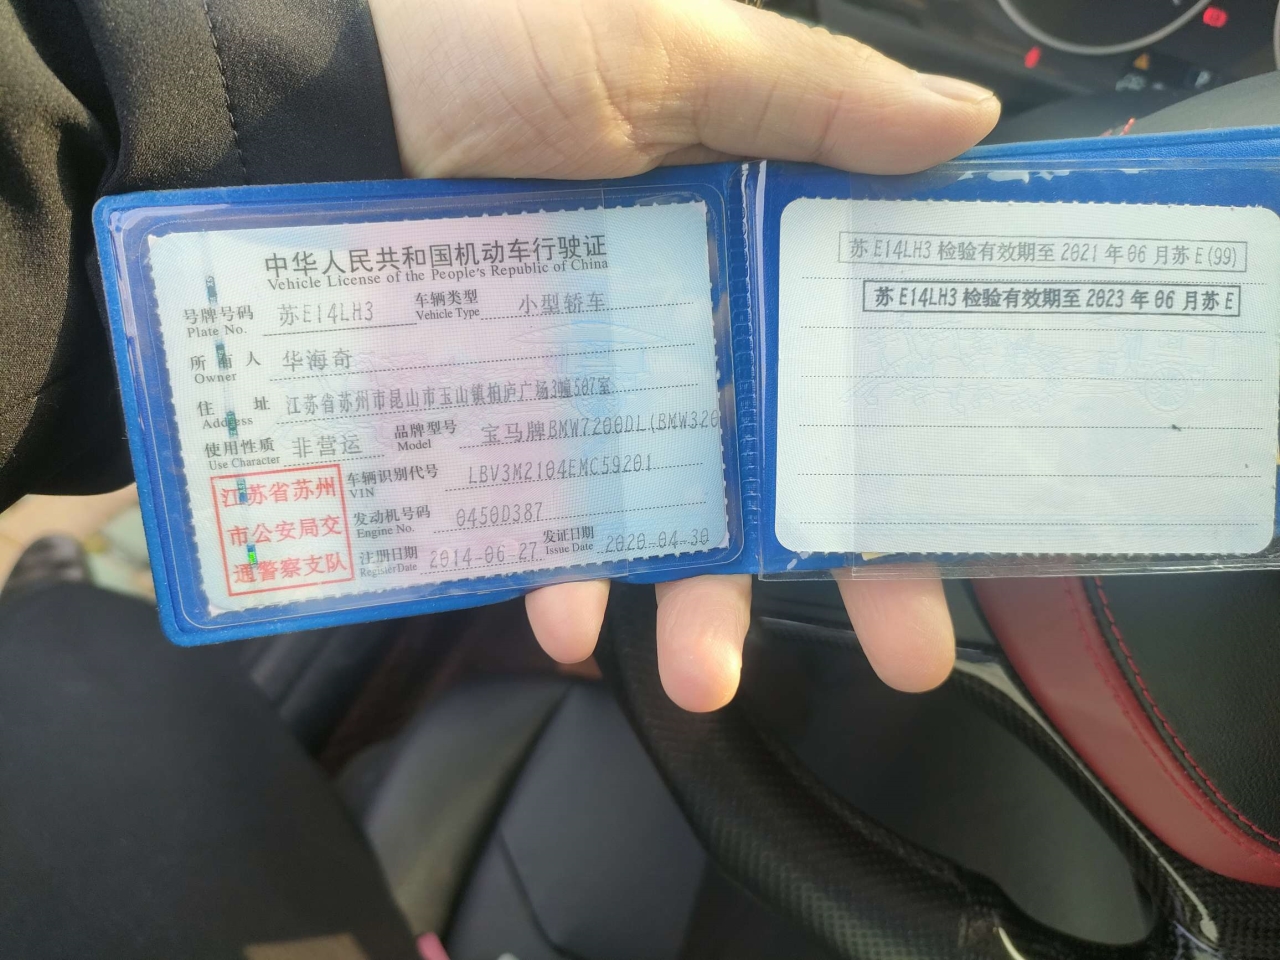 中华人民共和国机动车行驶证
Vehicle License of the People's Republic of China
号牌号码 苏E14LH3 车辆类型 小型轿车
Plate No. Vehicle Type
所有人 华海奇
Owner
住址 江苏省苏州市昆山市玉山镇柏庐广场3幢507室
Address
使用性质 非营运 品牌型号 宝马牌BMW7200DL(BMW320
Use Character Model
车辆识别代号 LBV3M2104EMC59201
VIN
发动机号码 0450D387
Engine No.
注册日期 2014-06-27 发证日期 2020-04-30
Register Date Issue Date
江苏省苏州
市公安局交
通警察支队
苏E14LH3 检验有效期至 2021 年 06 月苏 E(99)
苏 E14LH3 检验有效期至 2023 年 06 月苏 E
P